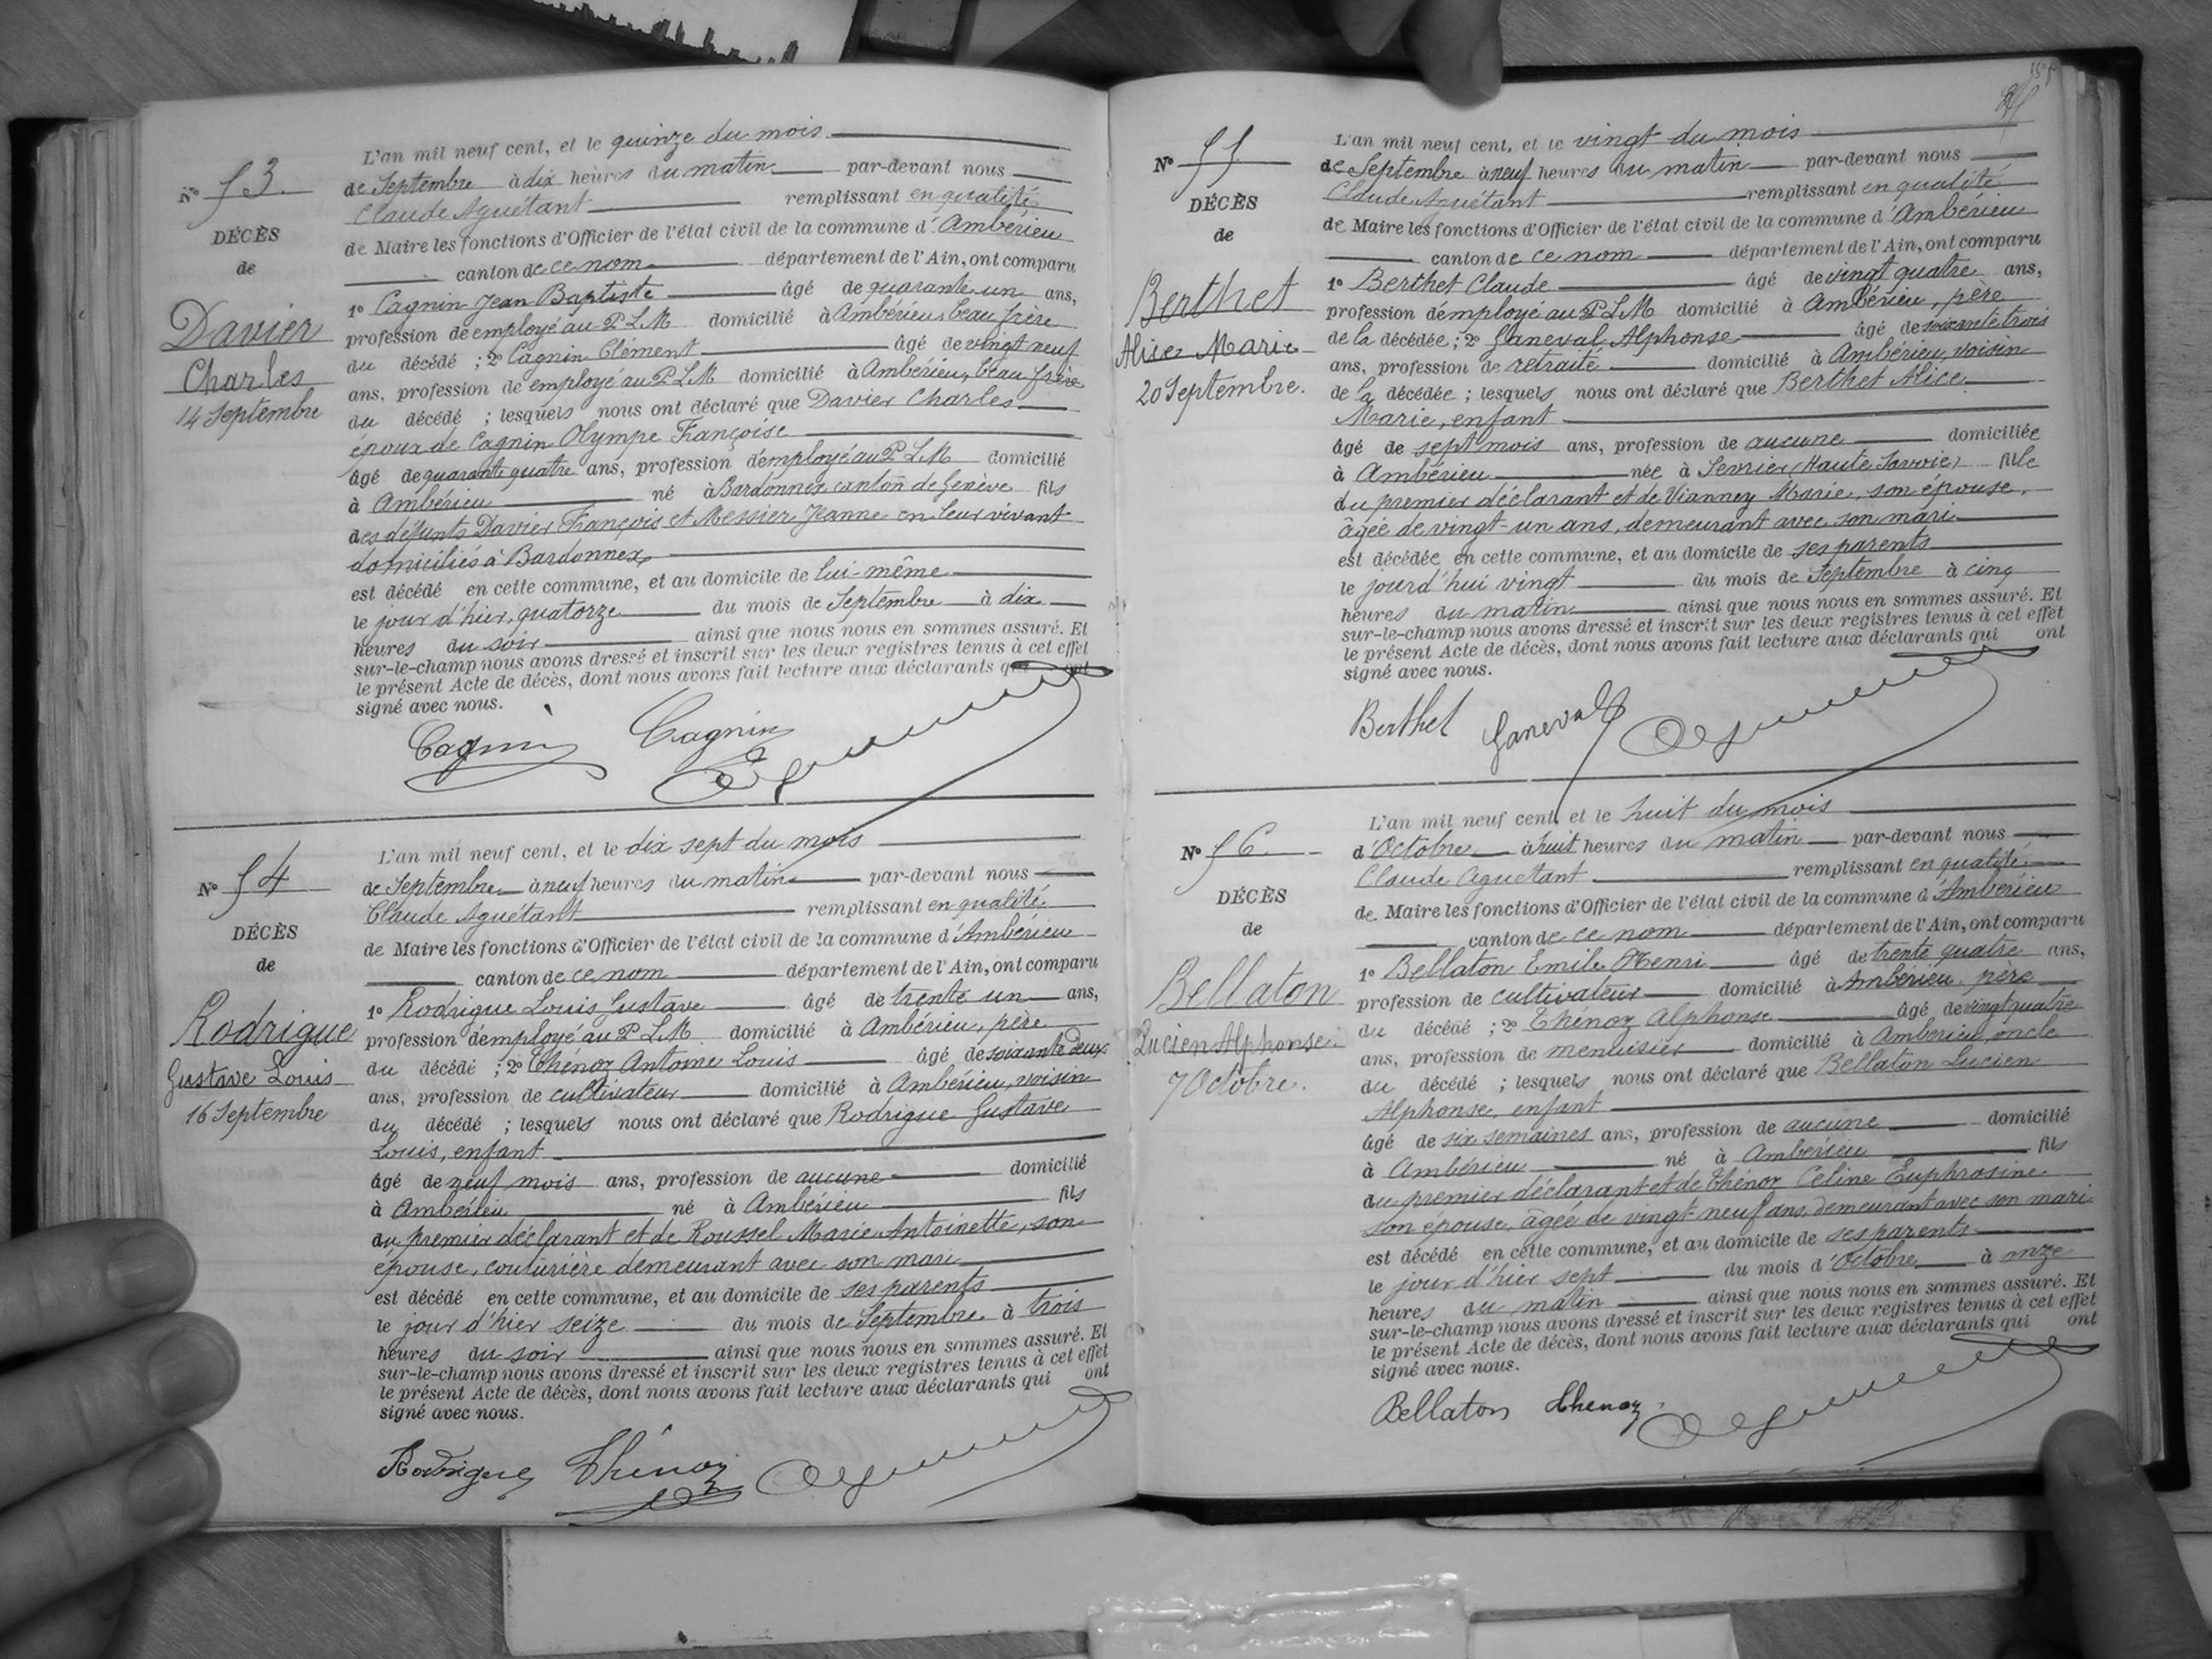 L'an mil neuf cent, et le quinze du mois
N° 53. de Septembre à dix heures du matin par-devant nous
Claude Aguétant remplissant en qualité
DÉCÈS de Maire les fonctions d'Officier de l'état civil de la commune d'Ambérieu
de canton de ce nom département de l'Ain, ont comparu
1° Cagnin Jean Baptiste âgé de quarante un ans,
Davier profession d'employé au P.L.M domicilié à Ambérieu, beau frère
du décédé ; 2° Cagnin Clément âgé de vingt neuf
Charles ans, profession de employé au P.L.M domicilié à Ambérieu, beau frère
14 Septembre du décédé ; lesquels nous ont déclaré que Davier Charles
époux de Cagnin Olympe Françoise
âgé de quarante quatre ans, profession d'employé au P.L.M domicilié
à Ambérieu né à Bardonnex canton de Genève fils
des défunts Davier François et Messier Jeanne en leur vivant
domiciliés à Bardonnex
est décédé en cette commune, et au domicile de lui-même
le jour d'hier, quatorze du mois de Septembre à dix
heures du soir ainsi que nous nous en sommes assuré. Et
sur-le-champ nous avons dressé et inscrit sur les deux registres tenus à cet effet
le présent Acte de décès, dont nous avons fait lecture aux déclarants qui ont
signé avec nous.
Cagnin Cagnin
L'an mil neuf cent, et le dix sept du mois
N° 54 de Septembre à neuf heures du matin par-devant nous
Claude Aguétant remplissant en qualité
DÉCÈS de Maire les fonctions d'Officier de l'état civil de la commune d'Ambérieu
de canton de ce nom département de l'Ain, ont comparu
1° Rodrigue Louis Gustave âgé de trente un ans,
Rodrigue profession d'employé au P.L.M. domicilié à Ambérieu, père
du décédé ; 2° Thénoz Antome Louis âgé de soixante deux
Gustave Louis ans, profession de cultivateur domicilié à Ambérieu, voisin
16 Septembre du décédé ; lesquels nous ont déclaré que Rodrigue Gustave
Louis, enfant
âgé de neuf mois ans, profession de aucune domicilié
à Ambérieu né à Ambérieu fils
du premier déclarant et de Roussel Marie Antoinette, son
épouse, couturière demeurant avec son mari
est décédé en cette commune, et au domicile de ses parents
le jour d'hier seize du mois de Septembre à trois
heures du soir ainsi que nous nous en sommes assuré. Et
sur-le-champ nous avons dressé et inscrit sur les deux registres tenus à cet effet
le présent Acte de décès, dont nous avons fait lecture aux déclarants qui ont
signé avec nous.
Rodrigue Thénoz
L'an mil neuf cent, et le vingt du mois
N° 55 de Septembre à neuf heures du matin par-devant nous
Claude Aguétant remplissant en qualité
DÉCÈS de Maire les fonctions d'Officier de l'état civil de la commune d'Ambérieu
de canton de ce nom département de l'Ain, ont comparu
1° Berthet Claude âgé de vingt quatre ans,
Berthet profession d'employé au P.L.M domicilié à Ambérieu, père
de la décédée ; 2° Ganeval Alphonse âgé de soixante trois
Alice Marie ans, profession de retraité domicilié à Ambérieu, voisin
20 Septembre. de la décédée ; lesquels nous ont déclaré que Berthet Alice
Marie, enfant
âgé de sept mois ans, profession de aucune domiciliée
à Ambérieu née à Sevrier (Haute Savoie) fille
du premier déclarant et de Vianney Marie, son épouse,
âgée de vingt-un ans, demeurant avec son mari
est décédée en cette commune, et au domicile de ses parents
le jourd'hui vingt du mois de Septembre à cinq
heures du matin ainsi que nous nous en sommes assuré. Et
sur-le-champ nous avons dressé et inscrit sur les deux registres tenus à cet effet
le présent Acte de décès, dont nous avons fait lecture aux déclarants qui ont
signé avec nous.
Berthet Ganeval
L'an mil neuf cent, et le huit du mois
N° 56. d'Octobre à huit heures du matin par-devant nous
Claude Aguétant remplissant en qualité
DÉCÈS de Maire les fonctions d'Officier de l'état civil de la commune d'Ambérieu
de canton de ce nom département de l'Ain, ont comparu
1° Bellaton Emile Henri âgé de trente quatre ans,
Bellaton profession de cultivateur domicilié à Ambérieu, père
du décédé ; 2° Thénoz Alphonse âgé de vingt quatre
Lucien Alphonse. ans, profession de menuisier domicilié à Ambérieu, oncle
7 Octobre. du décédé ; lesquels nous ont déclaré que Bellaton Lucien
Alphonse, enfant
âgé de six semaines ans, profession de aucune domicilié
à Ambérieu né à Ambérieu fils
du premier déclarant et de Thénoz Céline Euphrosine
son épouse, âgée de vingt-neuf ans, demeurant avec son mari
est décédé en cette commune, et au domicile de ses parents
le jour d'hier sept du mois d'Octobre à onze
heures du matin ainsi que nous nous en sommes assuré. Et
sur-le-champ nous avons dressé et inscrit sur les deux registres tenus à cet effet
le présent Acte de décès, dont nous avons fait lecture aux déclarants qui ont
signé avec nous.
Bellaton Thenoz